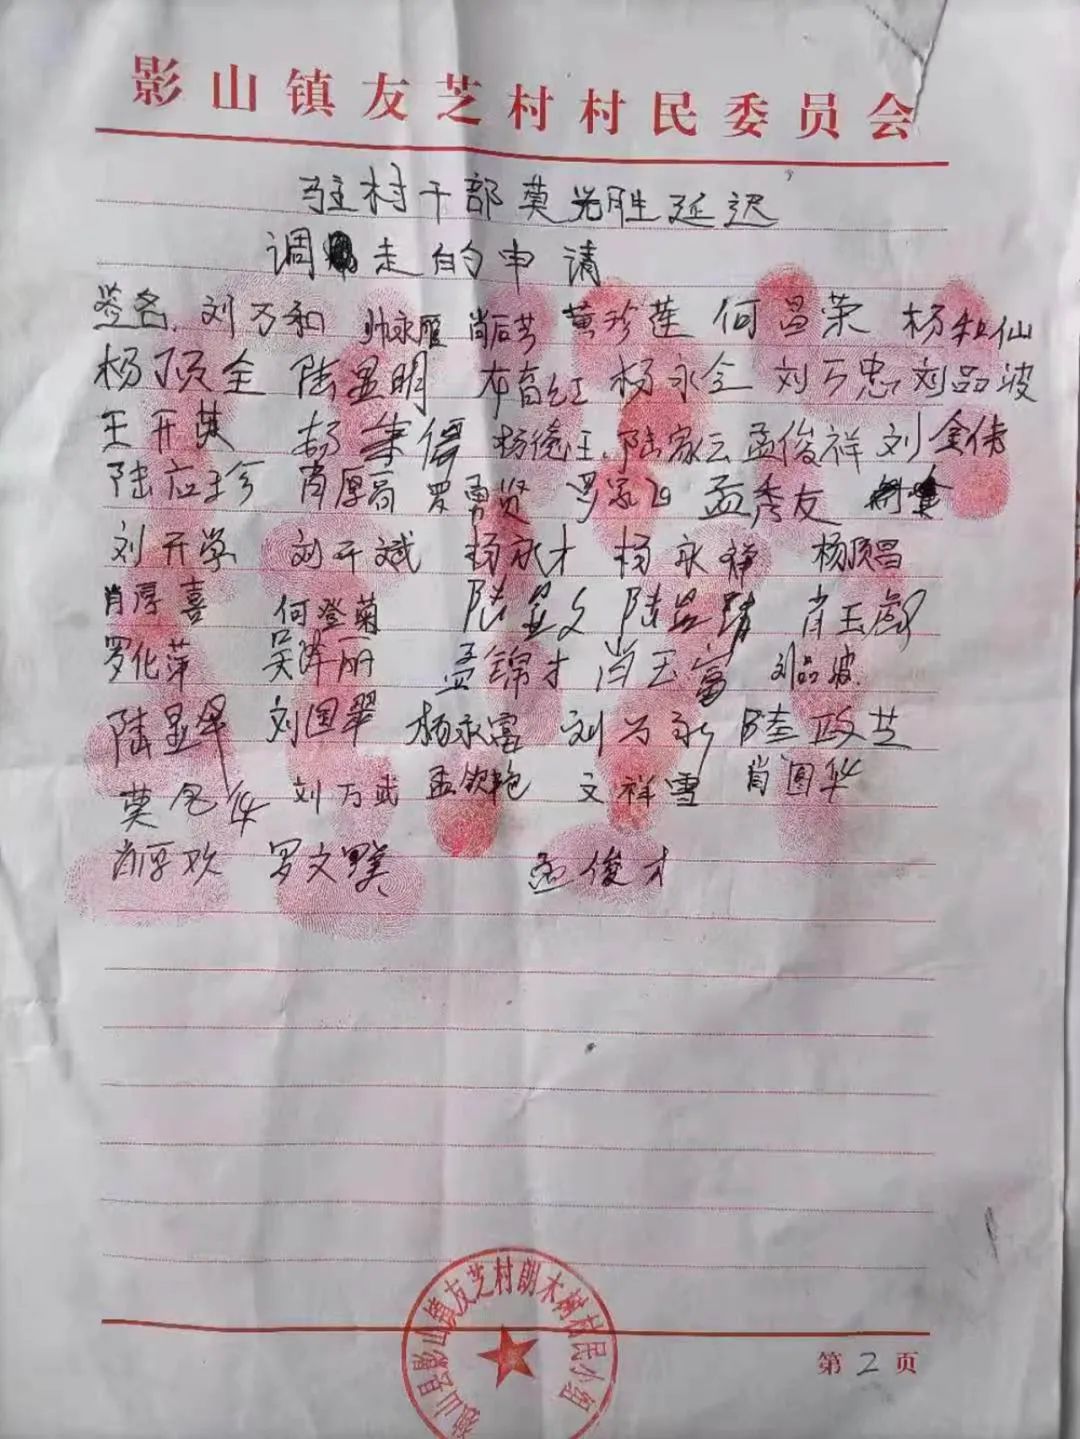 影山镇友芝村村民委员会
驻村干部莫光胜延迟
调走的申请
签名 刘万和 帅永雁 肖后芳 黄珍莲 何昌荣 杨秋仙
杨顶全 陆显明 韦育红 杨永全 刘万忠 刘品波
王开英 杨德江 陆家云 孟俊祥 刘金伟
陆应珍 肖厚高 罗勇贤 孟秀友
刘开学 刘开斌 杨永才 杨永锋 杨顶昌
肖厚喜 何登菊 陆显文 肖玉
罗化萍 吴泽丽 孟锦才 肖玉富 刘品波
陆显军 刘国翠 杨永富 刘万永 陆政芝
莫色华 刘万武 孟钦艳 文祥雪 肖国华
肖厚欢 罗文 孟俊才
独山县影山镇友芝村朗木树村民小组
第2页